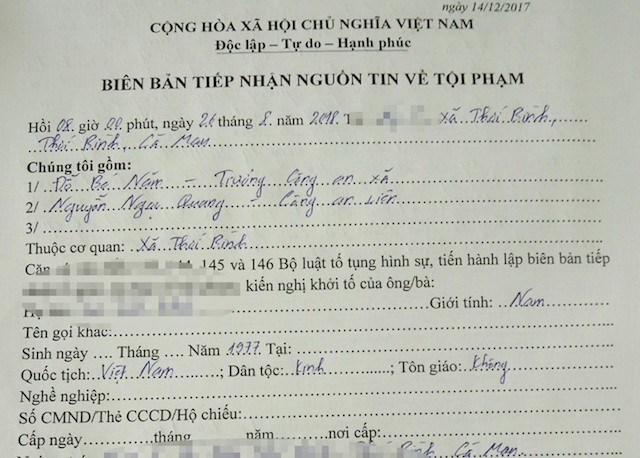 ngày 14/12/2017
CỘNG HÒA XÃ HỘI CHỦ NGHĨA VIỆT NAM
Độc lập – Tự do – Hạnh phúc
BIÊN BẢN TIẾP NHẬN NGUỒN TIN VỀ TỘI PHẠM
Hồi 08 giờ 00 phút, ngày 26 tháng 8 năm 2018 T xã Thái Bình,
Thới Bình, Cà Mau
Chúng tôi gồm:
1/ Đỗ Bé Năm – Trưởng Công an xã
2/ Nguyễn Ngọc Quang – Công an viên
3/
Thuộc cơ quan: Xã Thới Bình
Căn 145 và 146 Bộ luật tố tụng hình sự, tiến hành lập biên bản tiếp
kiến nghị khởi tố của ông/bà:
Họ Giới tính: Nam
Tên gọi khác:
Sinh ngày .... Tháng ..... Năm 1977 Tại:
Quốc tịch: Việt Nam ; Dân tộc: Kinh ; Tôn giáo: Không
Nghề nghiệp:
Số CMND/Thẻ CCCD/Hộ chiếu:
Cấp ngày tháng năm nơi cấp:
Bình Cà Mau